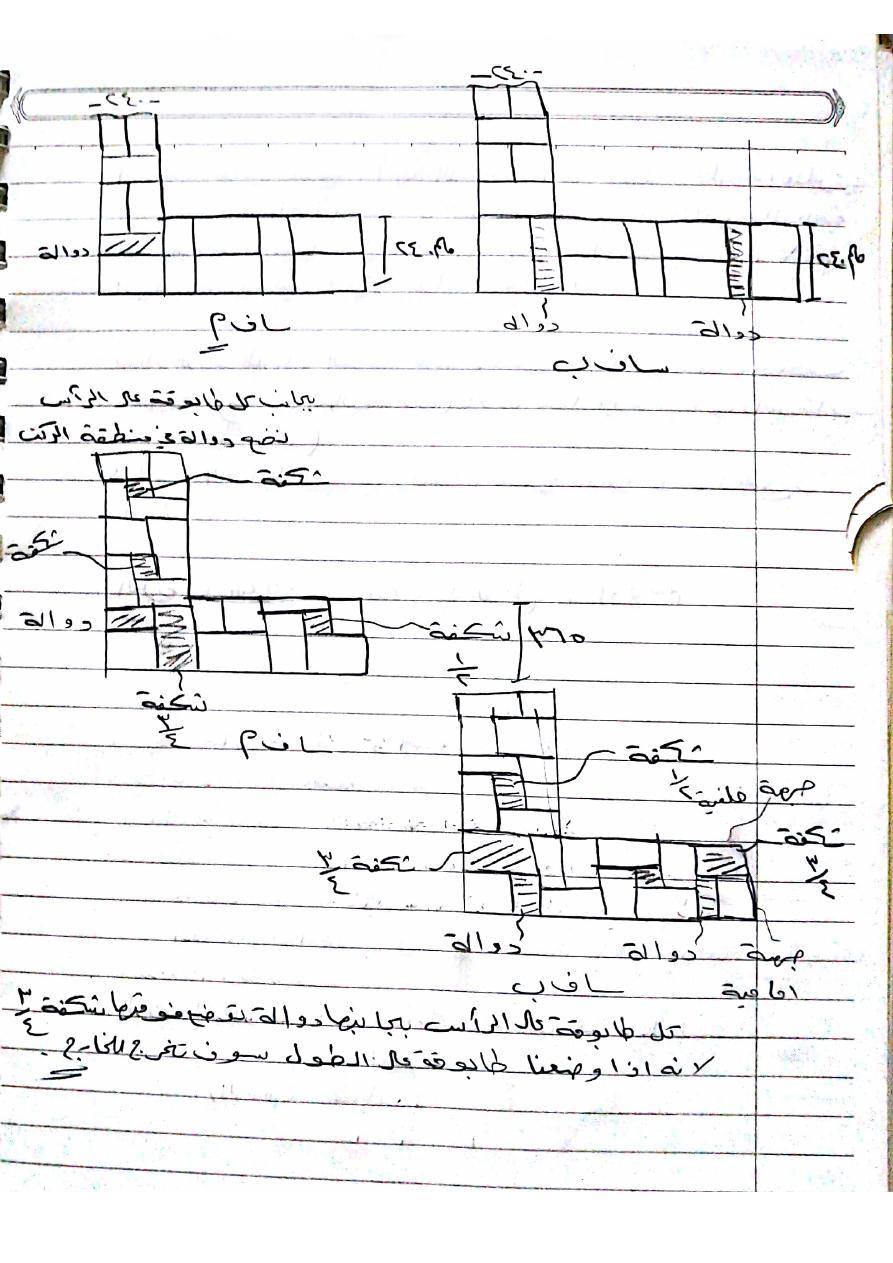 -٢٤٠-
-٢٤٠-
دوالة
٢٤٠ملم
٢٤٠ملم
ساف م
دوالة
دوالة
ساف ب
بجانب كل طابوقة على الرأس
نضع دوالة في منطقة الركن
شكفة
شكفة
دوالة
شكفة ١/٢
٣٦٥
شكفة ٣/٤
ساف م
شكفة ١/٢
جهة خلفية
شكفة ٣/٤
شكفة ٣/٤
دوالة
دوالة
جهة امامية
ساف ب
كل طابوقة على الرأس بجانبها دوالة توضع فوقها شكفة ٣/٤
لانه اذا وضعنا طابوقة على الطول سوف تخرج للخارج.